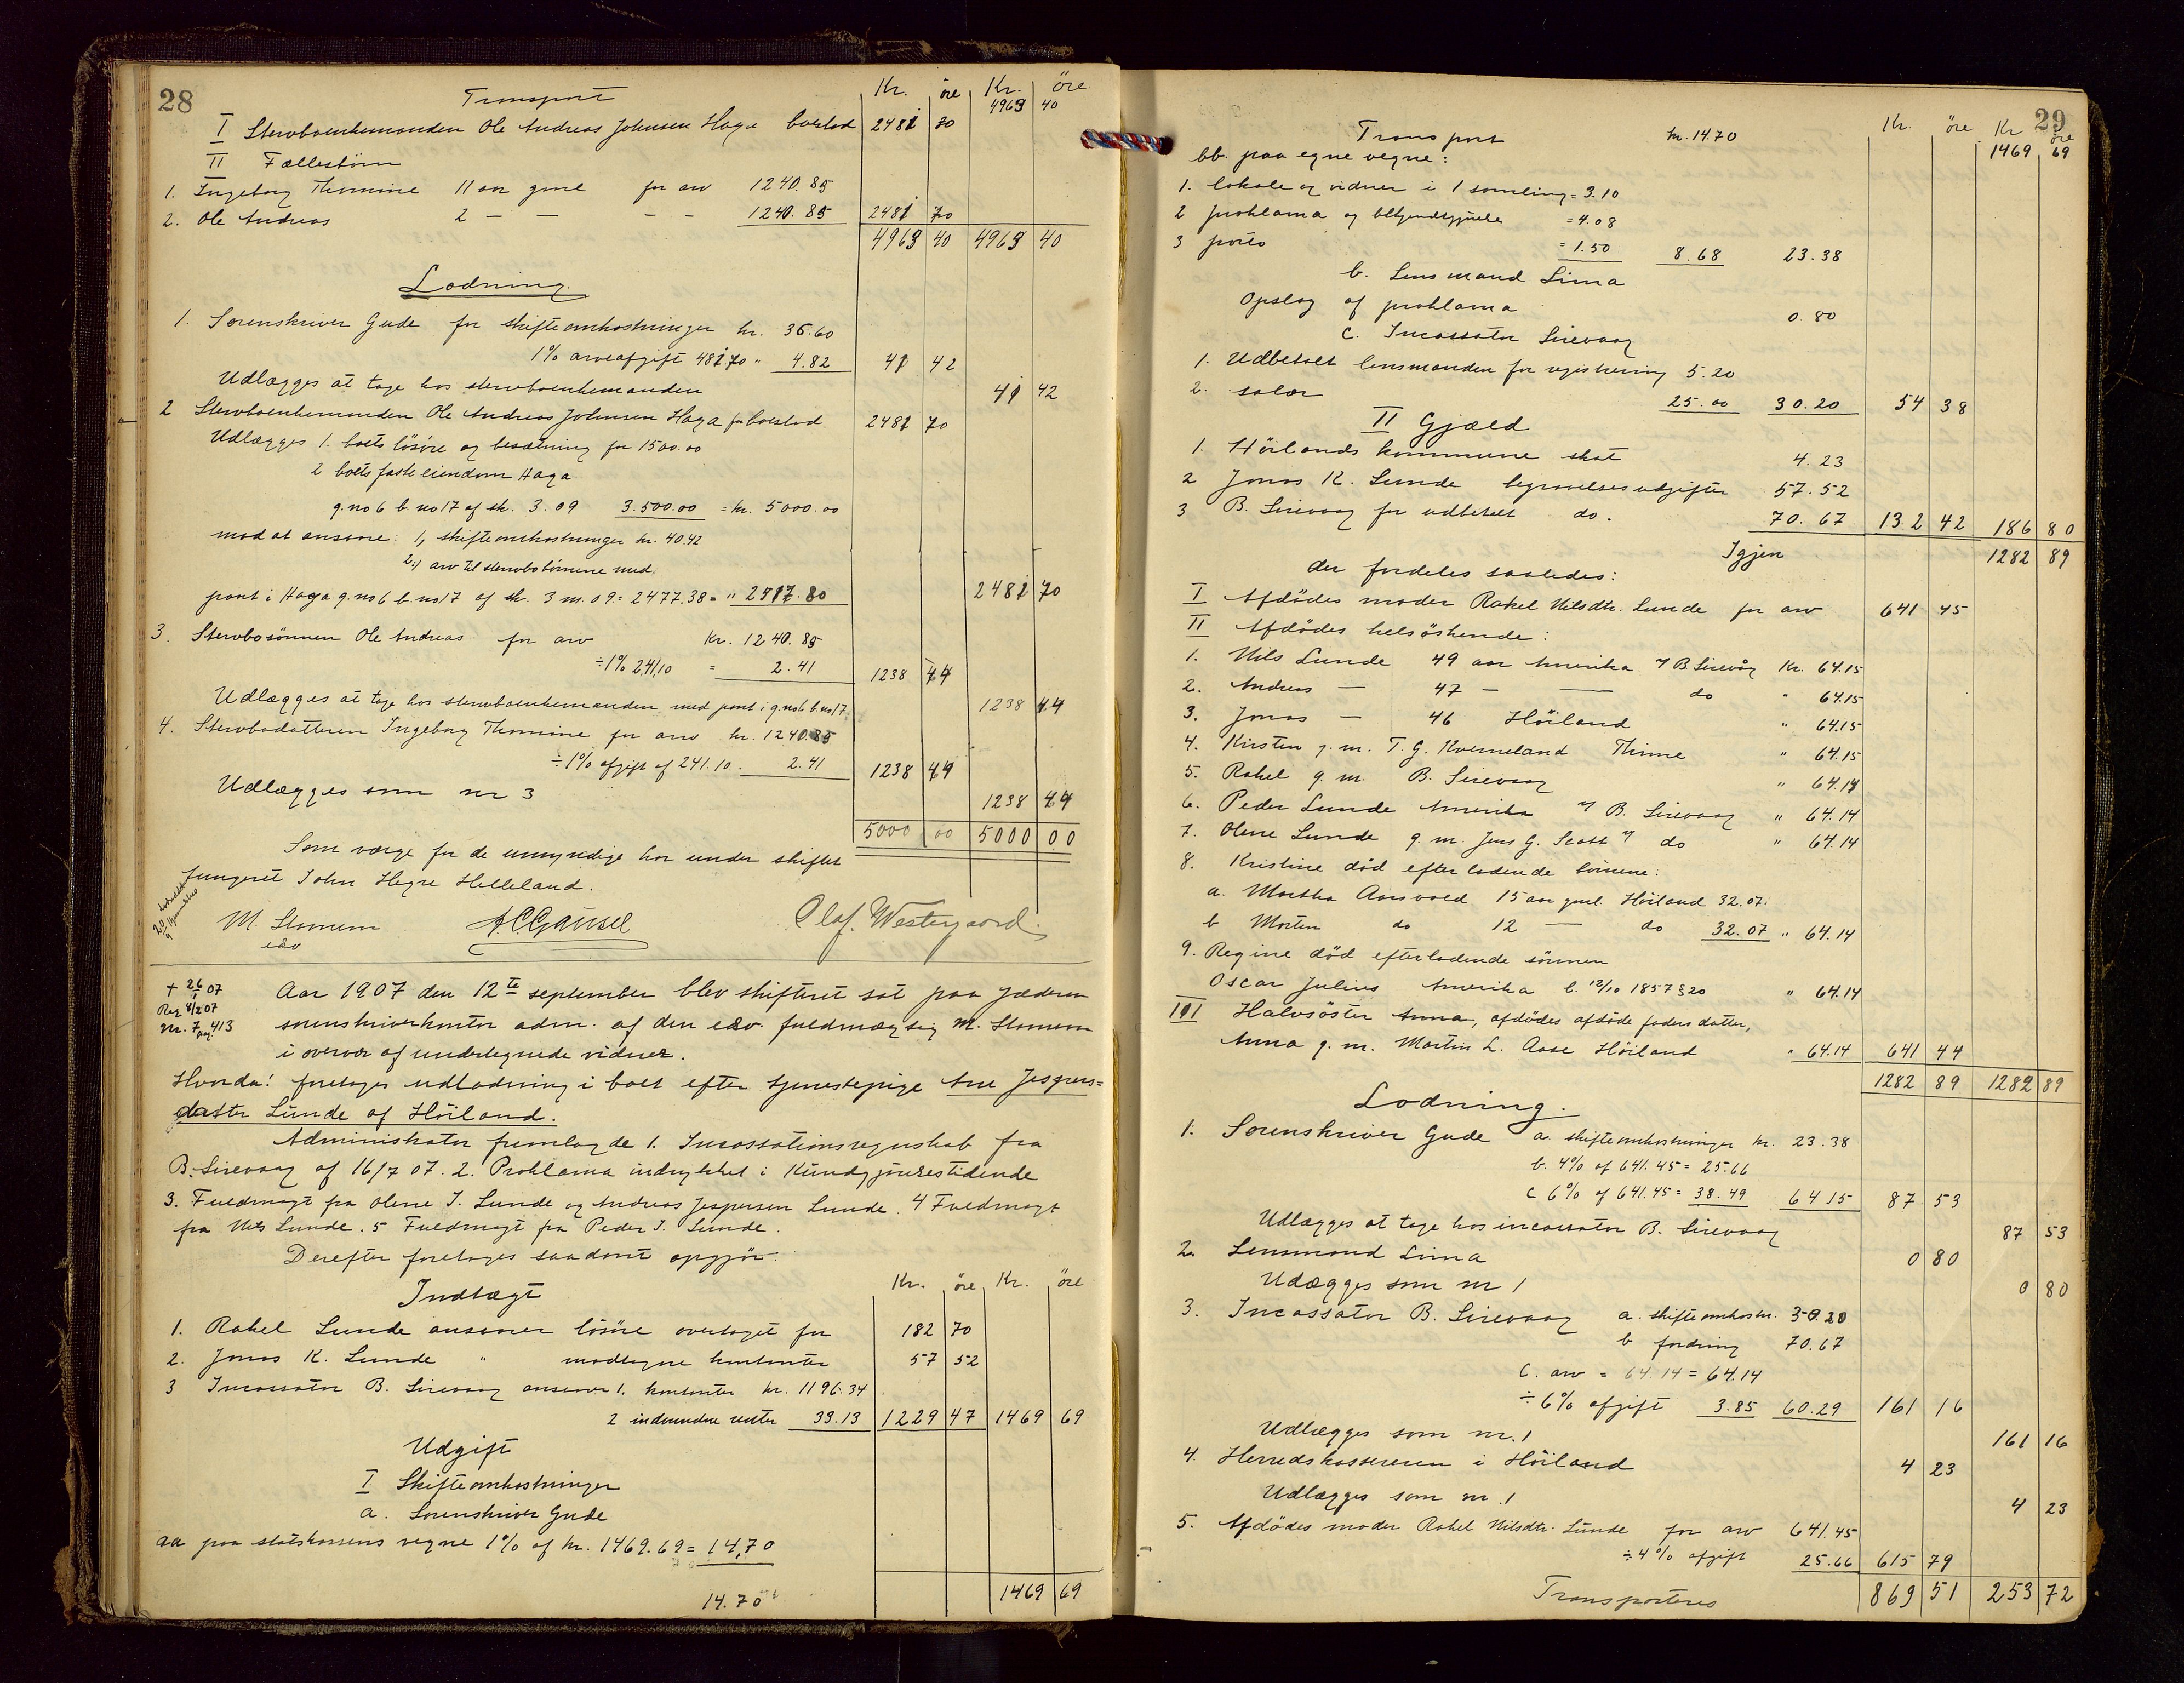 28
Transport
Kr. öre Kr. öre
4963 40
I Stervboenkemanden Ole Andreas Johnsen Haga boslod 2481 70
II Fællesbörn
1. Ingeborg Thomine 11 aar gml for arv 1240.85
2. Ole Andreas 2 — — — — 1240.85 2481 70
4963 40 4963 40
Lodning.
1. Sorenskriver Gude for skifteomkostninger kr. 36.60
1% arveafgift 481.70 " 4.82 41 42
Udlægges at tage hos stervboenkemanden 41 42
2 Stervboenkemanden Ole Andreas Johnsen Haga for boslod 2481 70
Udlægges 1. boets lösöre og besætning for 1500.00
2 boets faste eiendom Haga
g.no 6 b.no 17 af sk. 3.09 3.500.00 = kr. 5000.00
mod at ansvare: 1, skifteomkostninger kr. 40.42
2, arv til stervbobörnene med
pant i Haga g.no 6 b.no 17 af sk. 3 m. 09 = 2477.38 = " 2517.80 2481 70
3. Stervbosönnen Ole Andreas for arv Kr. 1240.85
÷ 1% 241,10 = 2.41 1238 44
Udlægges at tage hos stervboenkemanden med pant i g.no 6 b.no 17 1238 44
4. Stervbodatteren Ingeborg Thomine for arv kr. 1240.85
÷ 1% afgift af 241.10. 2.41 1238 44
Udlægges som nr 3 1238 44
5000 00 5000 00
Som værge for de umyndige har under skiftet
fungeret John Hegre Helleland.
M. Stomem A.C. Gausel Olaf. Westergaard.
edv
† 26/1 07
Reg 8/2 07
nr. 7 413
Aar 1907 den 12te september blev skifteret sat paa Jæderen
sorenskriverkontor adm. af den edv. fuldmægtig M. Stomem
i overvær af undertegnede vidner.
Hvorda! foretoges udlodning i boet efter tjenestepige Ane Jespers=
datter Lunde af Höiland.
Administrator fremlagde 1. Incassationsregnskab fra
B. Sirevaag af 16/7 07. 2. Proklama indrykket i Kundgjörelsestidende
3. Fuldmagt fra Olene J. Lunde og Andreas Jespersen Lunde. 4 Fuldmagt
fra Nils Lunde. 5 Fuldmagt fra Peder J. Lunde.
Derefter foretoges saadant opgjör.
Indtægt Kr. öre Kr. öre
1. Rakel Lunde ansvarer lösöre overtaget for 182 70
2. Jonas K. Lunde " modtagne kontanter 57 52
3 Incassator B. Sirevaag ansvarer 1. kontanter kr. 1196.34
2 indvundne renter 33.13 1229 47 1469 69
Udgift
I Skifteomkostninger
a. Sorenskriver Gude
aa paa statskassens vegne 1% af kr. 1469.69 = 14,70
14.70 1469 69
29
Transport kr. 14.70 Kr. öre Kr öre
1469 69
bb. paa egne vegne:
1. lokale og vidner i 1 samling = 3.10
2 proklama og bekjendtgjörelse = 4.08
3 porto = 1.50 8.68 23.38
b. Lensmand Lima
Opslag af proklama 0.80
c. Incassator Sirevaag
1. Udbetalt lensmanden for registrering 5.20
2. salær 25.00 30.20 54 38
II Gjæld
1. Höilands kommune skat 4.23
2 Jonas K. Lunde begravelsesudgifter 57.52
3 B. Sirevaag for udbetalt do. 70.67 132 42 186 80
Igjen 1282 89
der fordeles saaledes:
I Afdödes moder Rakel Nilsdtr. Lunde for arv 641 45
II Afdödes helsöskende:
1. Nils Lunde 49 aar Amerika v/ B. Sirevåg Kr. 64.15
2. Andreas — 47 — — do " 64.15
3. Jonas — 46 Höiland " 64.15
4. Kirsten g.m. T. G. Kverneland Thime " 64.15
5. Rakel g.m. B. Sirevaag " 64.14
6. Peder Lunde Amerika v/ B. Sirevaag " 64.14
7. Olene Lunde g.m. Jens G. Scott v/ do " 64.14
8. Kristine död efterladende börnene:
a. Martha Aarsvold 15 aar gml. Höiland 32.07.
b Morten do 12 — do 32.07 " 64.14
9. Regine död efterladende sönnen
Oscar Julius Amerika b. 12/10 1857 § 20 " 64.14
III Halvsöster Anna, afdödes afdöde faders datter,
Anna g.m. Martin L. Aase Höiland " 64.14 641 44
1282 89 1282 89
Lodning.
1. Sorenskriver Gude a. skifteomkostninger kr. 23.38
b. 4% af 641.45 = 25.66
c 6% af 641.45 = 38.49 64 15 87 53
Udlægges at tage hos incassator B. Sirevaag 87 53
2. Lensmand Lima 0 80
Udægges som nr 1 0 80
3. Incassator B. Sirevaag a. skifteomkostn. 30.20
b fordring 70.67
c. arv = 64.14 = 64.14
÷ 6% afgift 3.85 60.29 161 16
Udlægges som nr. 1 161 16
4. Herredskassereren i Höiland 4 23
Udlægges som nr. 1 4 23
5. Afdödes moder Rakel Nilsdtr. Lunde for arv 641.45
÷ 4% afgift 25.66 615 79
Transporteres 869 51 253 72